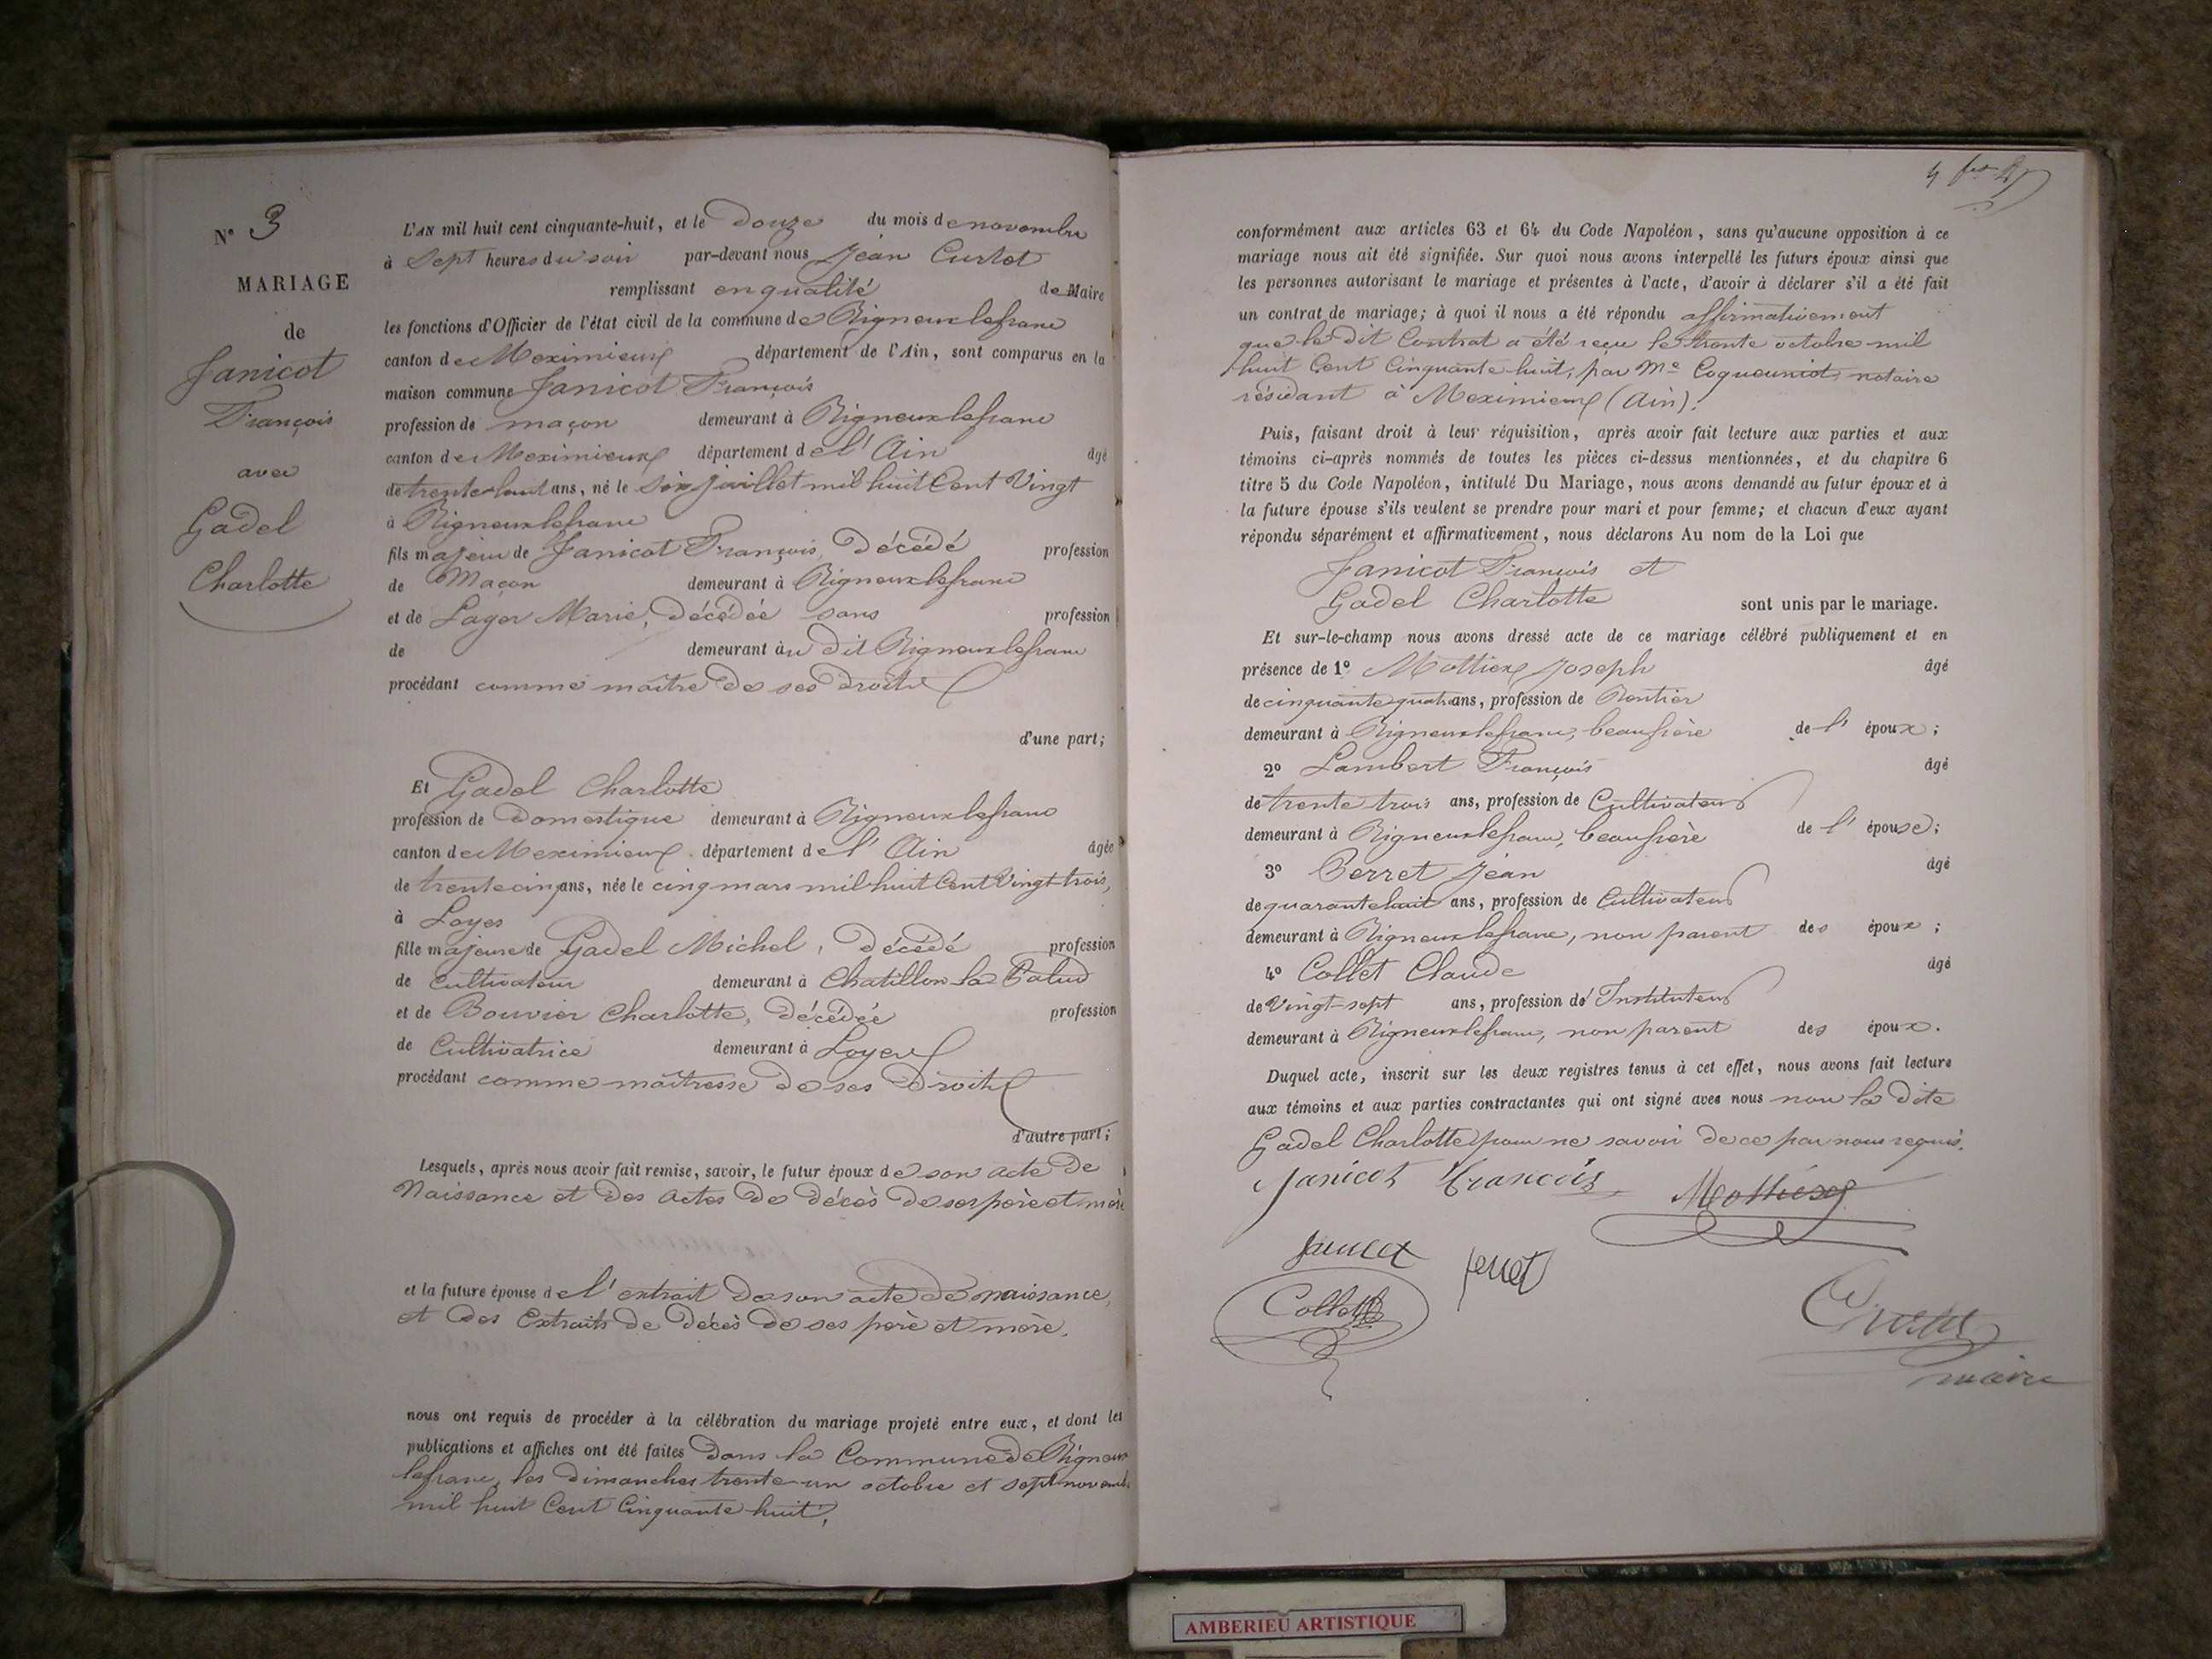 N° 3
MARIAGE
de
Janicot
François
avec
Gadel
Charlotte
L'AN mil huit cent cinquante-huit, et le Douze du mois de novembre
à Sept heures du soir par-devant nous Jean Curtet
remplissant en qualité de Maire
les fonctions d'Officier de l'état civil de la commune de Rigneux lefranc
canton de Meximieux département de l'Ain, sont comparus en la
maison commune Janicot François
profession de maçon demeurant à Rigneux lefranc
canton de Meximieux département de l'Ain âgé
de trente-huit ans, né le Six juillet mil huit Cent Vingt
à Rigneux lefranc
fils majeur de Janicot François, Décédé profession
de Maçon demeurant à Rigneux lefranc
et de Lager Marie, Décédée sans profession
de demeurant àu Dit Rigneux lefranc
procédant comme maître de ses droits
d'une part;
Et Gadel Charlotte
profession de Domestique demeurant à Rigneux lefranc
canton de Meximieux département de l'Ain âgée
de trente cinq ans, née le cinq mars mil huit Cent Vingt trois,
à Loyes
fille majeure de Gadel Michel, Décédé profession
de Cultivateur demeurant à Chatillon la Palud
et de Bouvier Charlotte, Décédée profession
de Cultivatrice demeurant à Loyes
procédant comme maîtresse de ses Droits
d'autre part;
Lesquels, après nous avoir fait remise, savoir, le futur époux de son acte de
Naissance et des actes de décès de ses père et mère
et la future épouse de l'extrait de son acte de naissance,
et des Extraits de Décès de ses père et mère.
nous ont requis de procéder à la célébration du mariage projeté entre eux, et dont les
publications et affiches ont été faites Dans la Commune de Rigneux
lefranc, les Dimanches trente-un octobre et sept novemb
mil huit Cent Cinquante huit,
conformément aux articles 63 et 64 du Code Napoléon, sans qu'aucune opposition à ce
mariage nous ait été signifiée. Sur quoi nous avons interpellé les futurs époux ainsi que
les personnes autorisant le mariage et présentes à l'acte, d'avoir à déclarer s'il a été fait
un contrat de mariage; à quoi il nous a été répondu affirmativement
que le dit Contrat a été reçu le trente octobre mil
huit Cent Cinquante huit, par Me notaire
résidant à Meximieux (Ain).
Puis, faisant droit à leur réquisition, après avoir fait lecture aux parties et aux
témoins ci-après nommés de toutes les pièces ci-dessus mentionnées, et du chapitre 6
titre 5 du Code Napoléon, intitulé Du Mariage, nous avons demandé au futur époux et à
la future épouse s'ils veulent se prendre pour mari et pour femme; et chacun d'eux ayant
répondu séparément et affirmativement, nous déclarons Au nom de la Loi que
Janicot François et
Gadel Charlotte sont unis par le mariage.
Et sur-le-champ nous avons dressé acte de ce mariage célébré publiquement et en
présence de 1° Mottiex Joseph âgé
de cinquante quatre ans, profession de Rentier
demeurant à Rigneux lefranc, beaufrère de l' époux;
2° Lambert François âgé
de trente trois ans, profession de Cultivateur
demeurant à Rigneux lefranc, beaufrère de l' épouse;
3° Perret Jean âgé
de quarante huit ans, profession de Cultivateur
demeurant à Rigneux lefranc, non parent des époux;
4° Collet Claude âgé
de Vingt-sept ans, profession de Instituteur
demeurant à Rigneux lefranc, non parent des époux.
Duquel acte, inscrit sur les deux registres tenus à cet effet, nous avons fait lecture
aux témoins et aux parties contractantes qui ont signé avec nous non la Dite
Gadel Charlotte pour ne savoir de ce par nous requis.
Janicot François
Collet
maire
AMBERIEU ARTISTIQUE